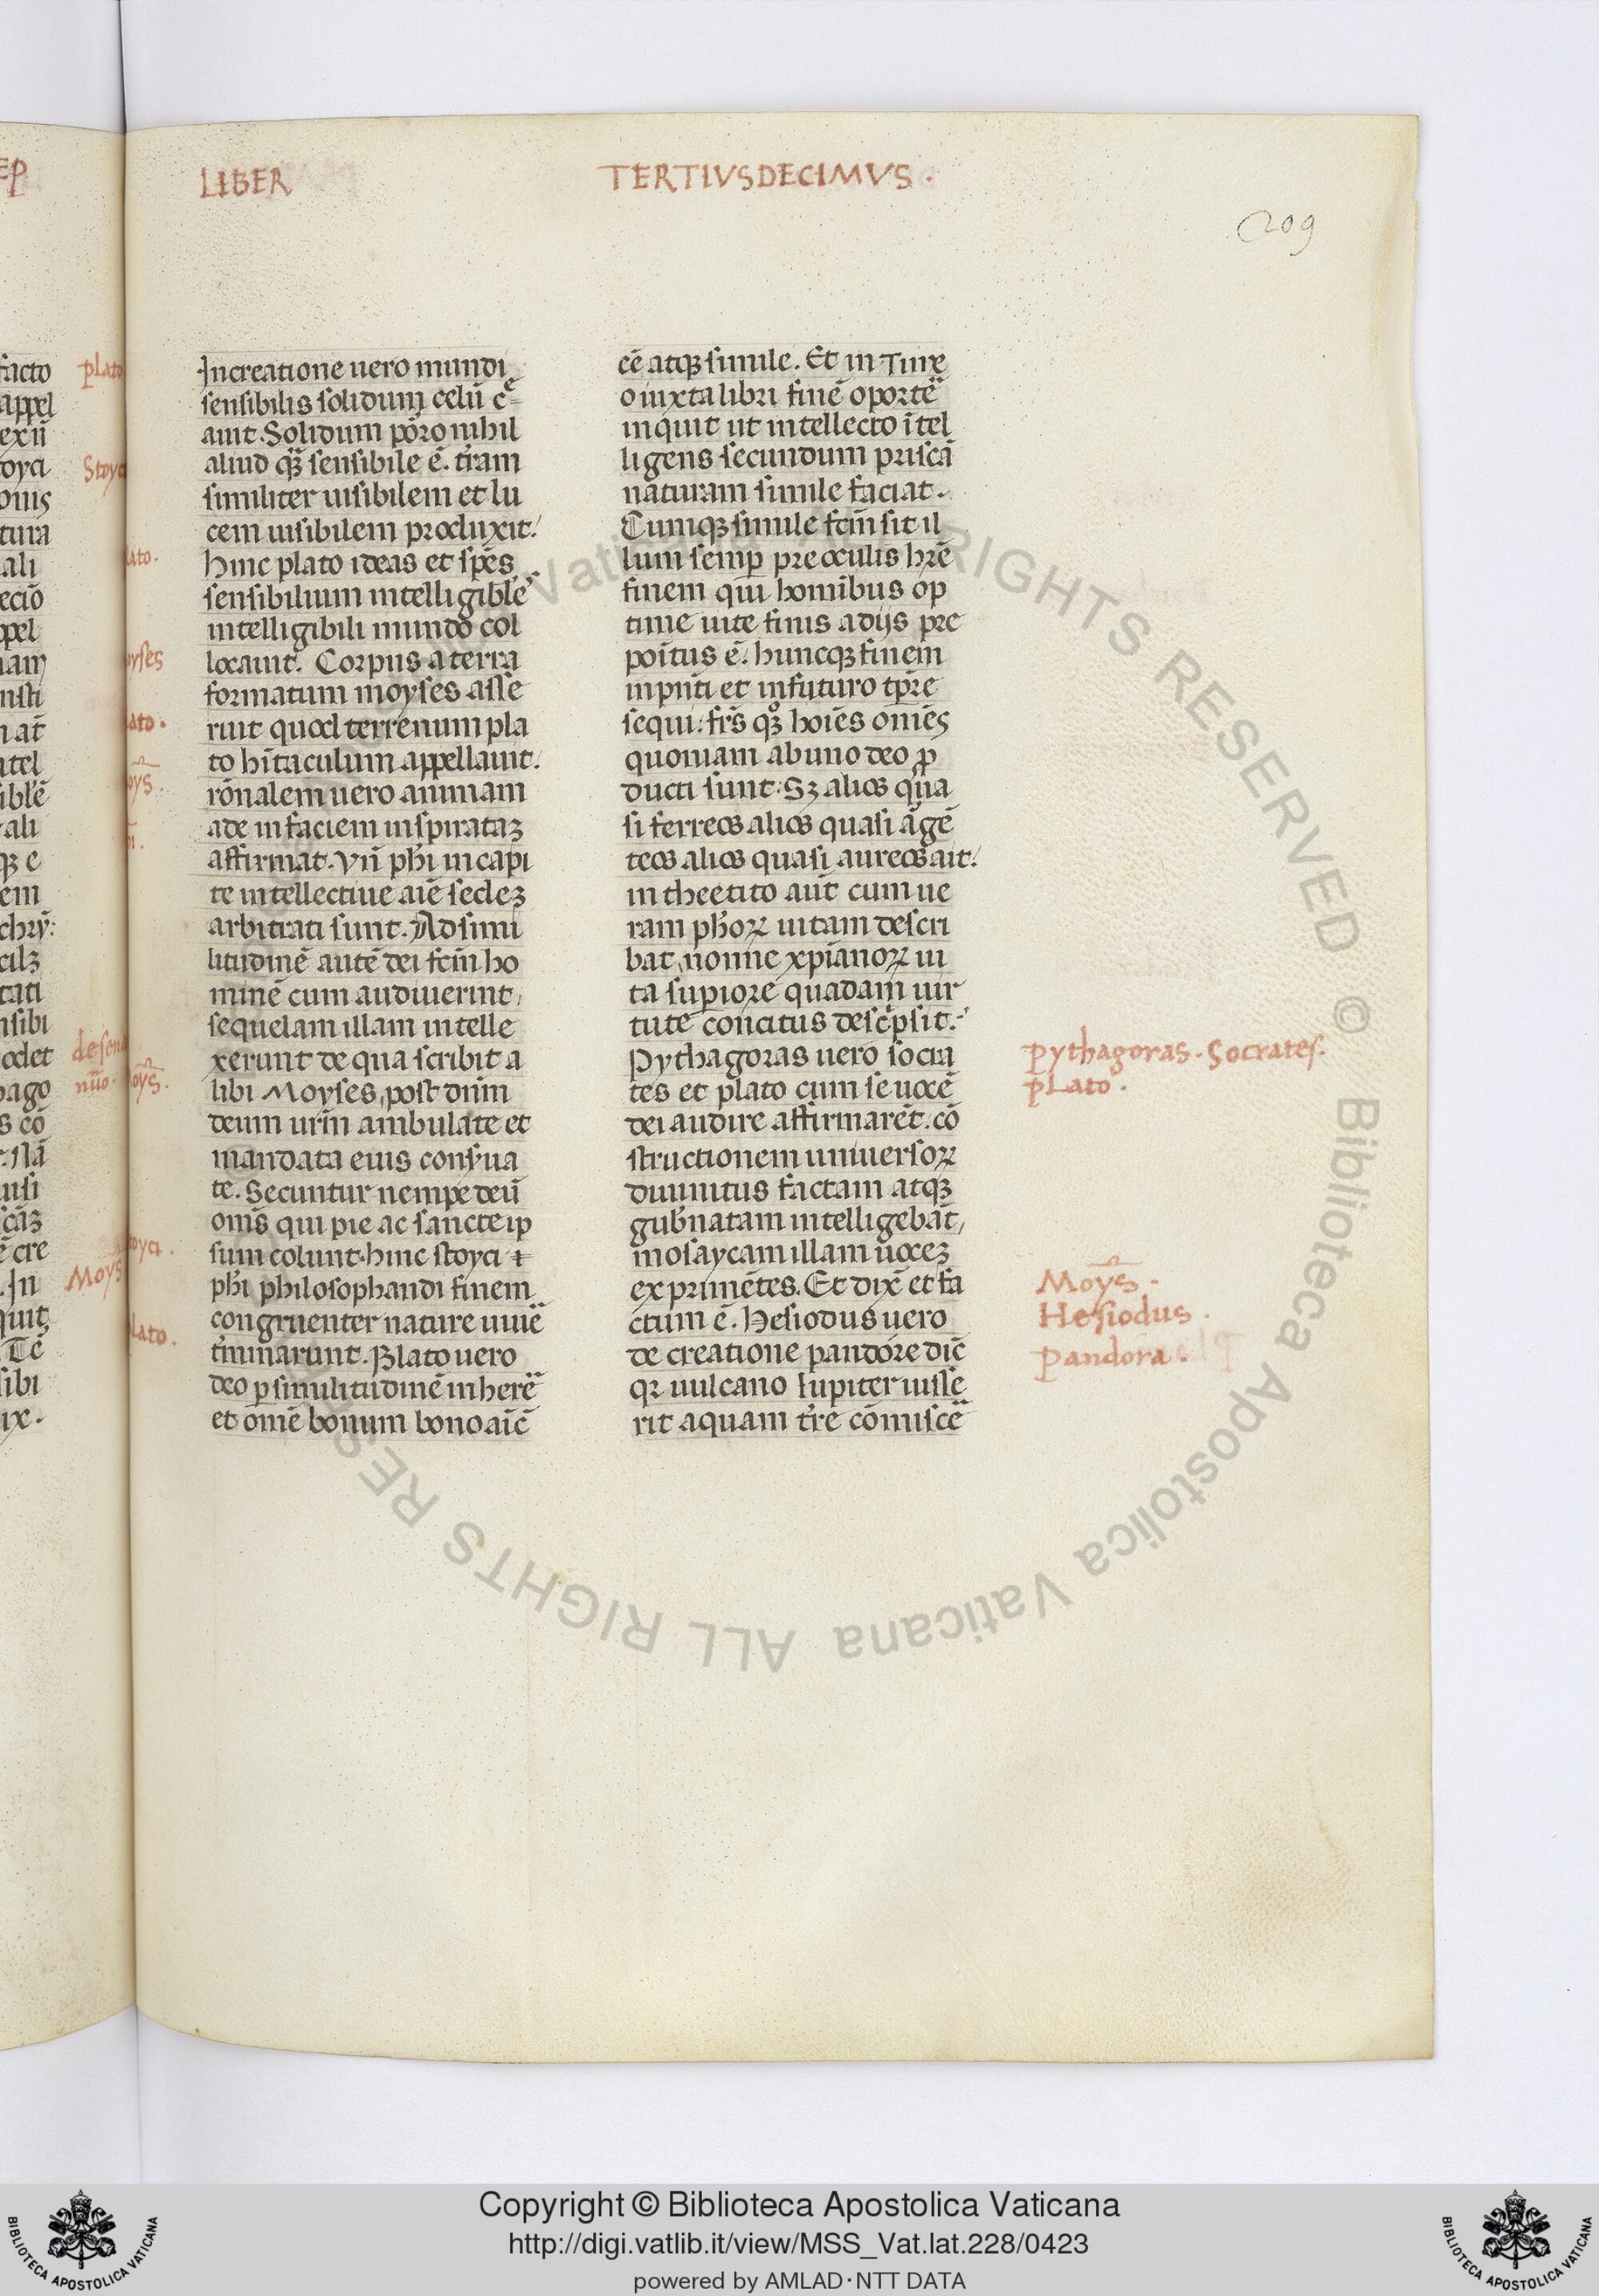 LIBER TERTIVSDECIMVS.
209
Increatione uero mundi
sensibilis solidum celū c̄
auit. Solidum pōro nihil
aliud qȝ̄ sensibile ē. t̄ram
similiter uisibilem et lu
cem uisibilem produxit.
hinc plato ideas et sp̄es
sensibilium intelligibiłe
intelligibili mundo col
locauit. Corpus a terra
formatum moyses asse
ruit quod terrenum pla
to hītaculum appellauit.
rōnalem uero animam
ade in faciem inspirataȝ
affirmat. Vn̄ pħi in capi
te intellectiue aīe sedeȝ
arbitrati sunt. Ad simi
litudinē autē dei fcm̄ ho
minē cum audiuerint,
sequelam illam intelle
xerunt de qua scribit a
libi Moyses, post dnm̄
deum urm̄ ambulate et
mandata eius cons̄ua
te. Secuntur nempe deū
oms̄ qui pie ac sancte ip
sum colunt. hinc stoyci ⁊
pħi philosophandi finem
congruenter nature uiuē
t̄minarunt. Plato uero
deo p̱ similitudinē inherē
et omē bonum bono aīcē
eē atqȝ simile. Et in Time
o iuxta libri finē oportē
inquit ut intellecto ītel
ligens secundum priscā
naturam simile faciat.
Cumqȝ simile fcm̄ sit il
lum semp̱ pre oculis hr̄e
finem qui homībus op
time uite finis a dijs pre
poītus ē. huncqȝ finem
in pn̄ti et in futuro tp̄re
sequi. frs̄ qȝ hoīes omēs
quoniam ab uno deo p̱
ducti sunt. Sȝ alios qua
si ferreos alios quasi āgē
teos alios quasi aureos ait.
in theetito aut̄ cum ue
ram pħoꝝ uitam descri
bat, nonne xp̄ianoꝝ ui
ta sup̱iore quadam uir
tute concitus desc̄psit.
Pythagoras uero socra
tes et plato cum se uocē
dei audire affirmarēt. cō
structionem uniuersoꝝ
diuinitus factam atqȝ
gub̄natam intelligebāt,
mosaycam illam uoceȝ
exprimētes. Et dix̄ et fa
ctum ē. Hesiodus uero
de creatione pandōre dic̄
qꝛ uulcano Iupiter iusse
rit aquam t̄re cōmiscē
pythagoras. Socrates.
plato.
Moys̄.
Hesiodus.
pandora.
Copyright © Biblioteca Apostolica Vaticana
http://digi.vatlib.it/view/MSS_Vat.lat.228/0423
powered by AMLAD·NTT DATA
BIBLIOTECA APOSTOLICA VATICANA
BIBLIOTECA APOSTOLICA VATICANA
© Biblioteca Apostolica Vaticana ALL RIGHTS RESERVED